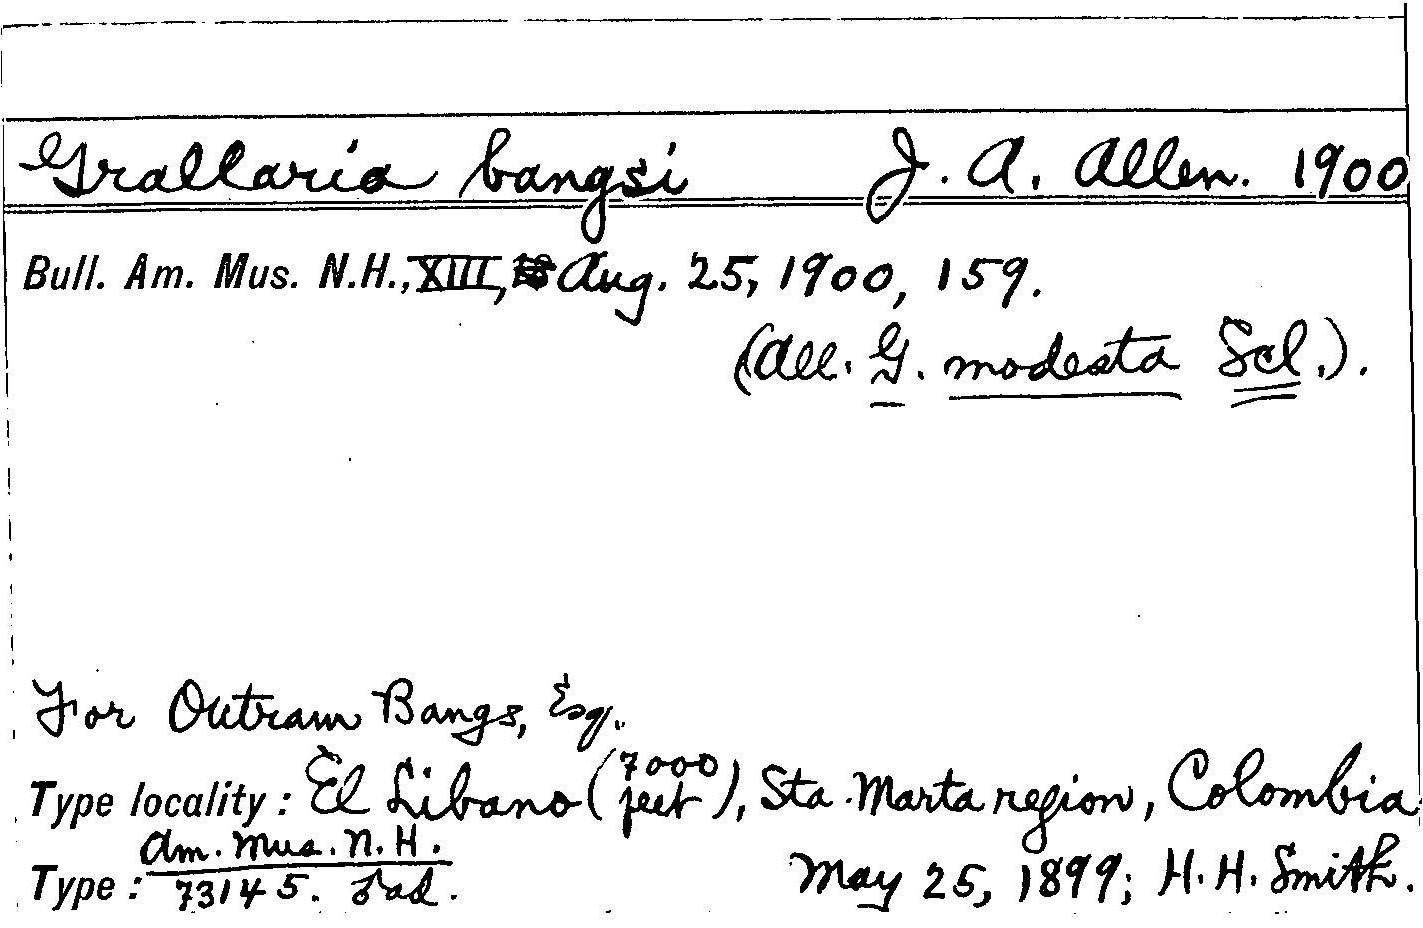 Grallaria bangsi J. A. Allen. 1900
Bull. Am. Mus. N.H., XIII, Aug. 25, 1900, 159.
(All. G. modesta Scl.).
For Outram Bangs, Esq.
Type locality: El Libano (7000 feet), Sta. Marta region, Colombia
Am. Mus. N. H.
Type: 73145. ♂ad. May 25, 1899; H. H. Smith.